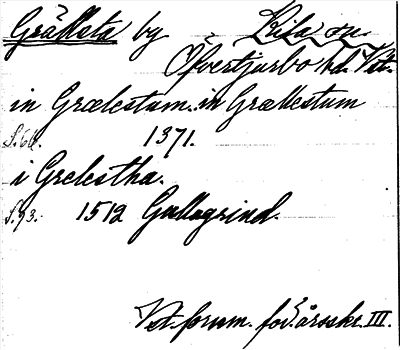 Grällsta by Kila sn.
Övertjurbo hd. Vstm.
in Grælestum. in Grællestum
S. 66. 1371.
i Grelestha.
S. 93. 1512 Gullegrind.
Vst. fornm. för. årsskr. III.